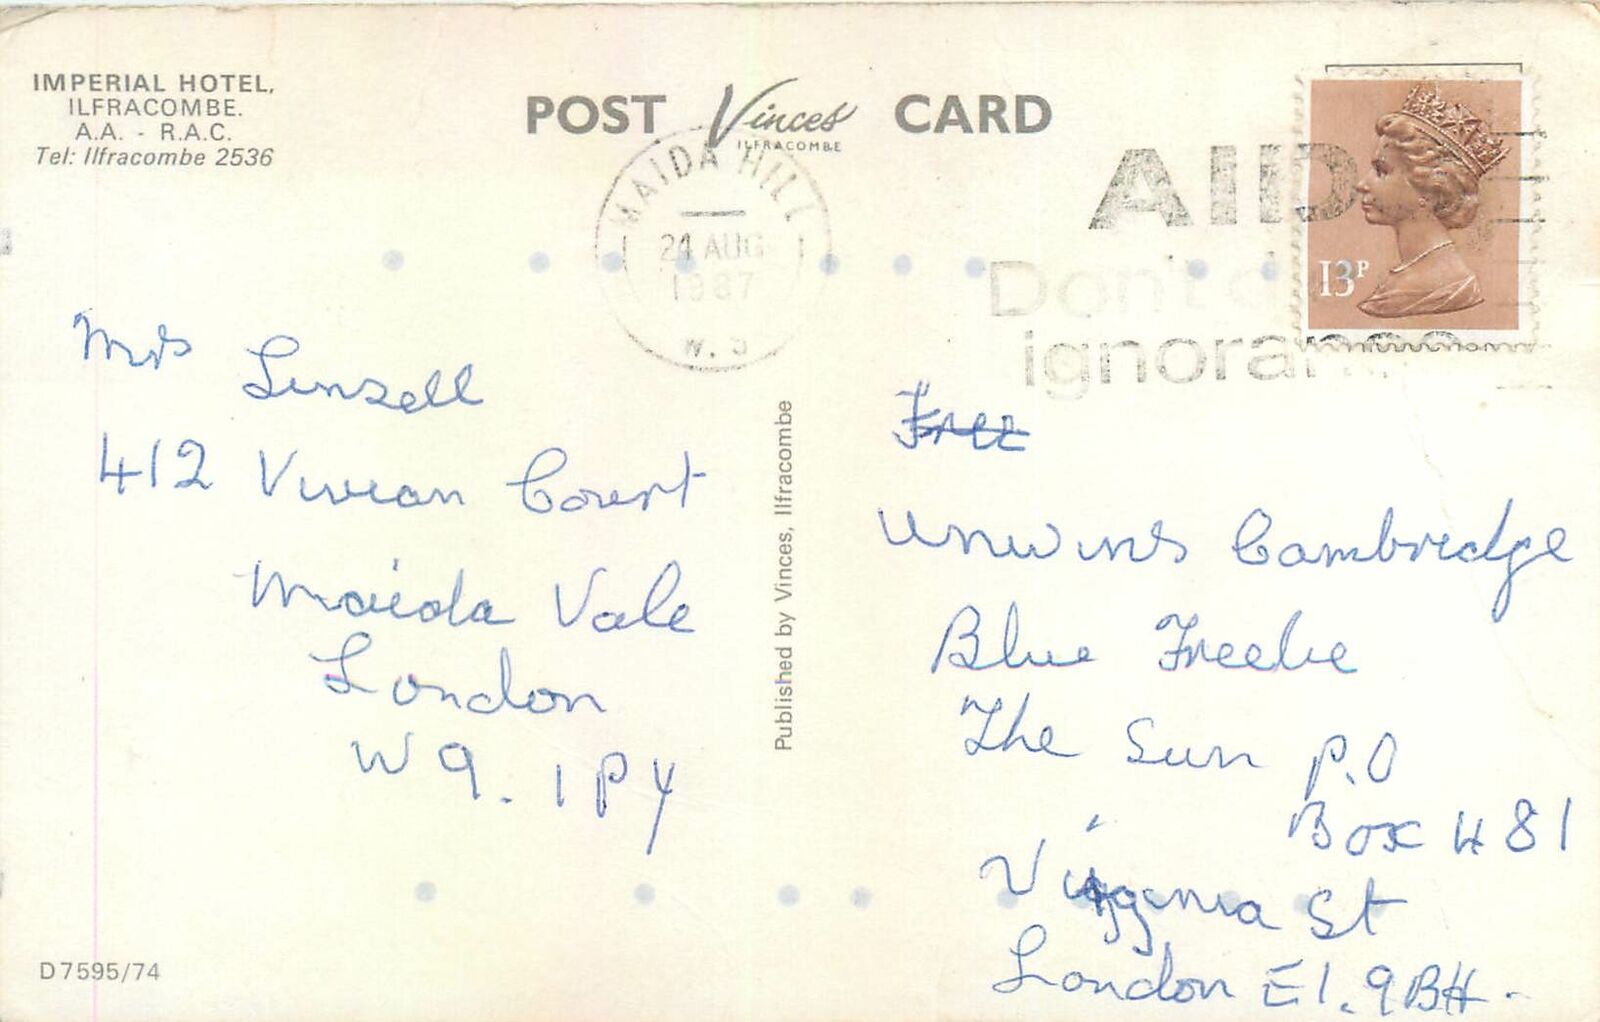 IMPERIAL HOTEL,
ILFRACOMBE.
A.A. - R.A.C.
Tel: Ilfracombe 2536
POST Vinces CARD
ILFRACOMBE
MAIDA HILL
24 AUG
1987
W. 9
AID
Don't d
ignorance
13P
Mrs Linzell
412 Vivian Court
Maida Vale
London
W9. 1PY
D7595/74
Published by Vinces, Ilfracombe
Free
Unwins Cambridge
Blue Freebe
The Sun P.O
Box 481
Virginia St
London E1. 9BH.